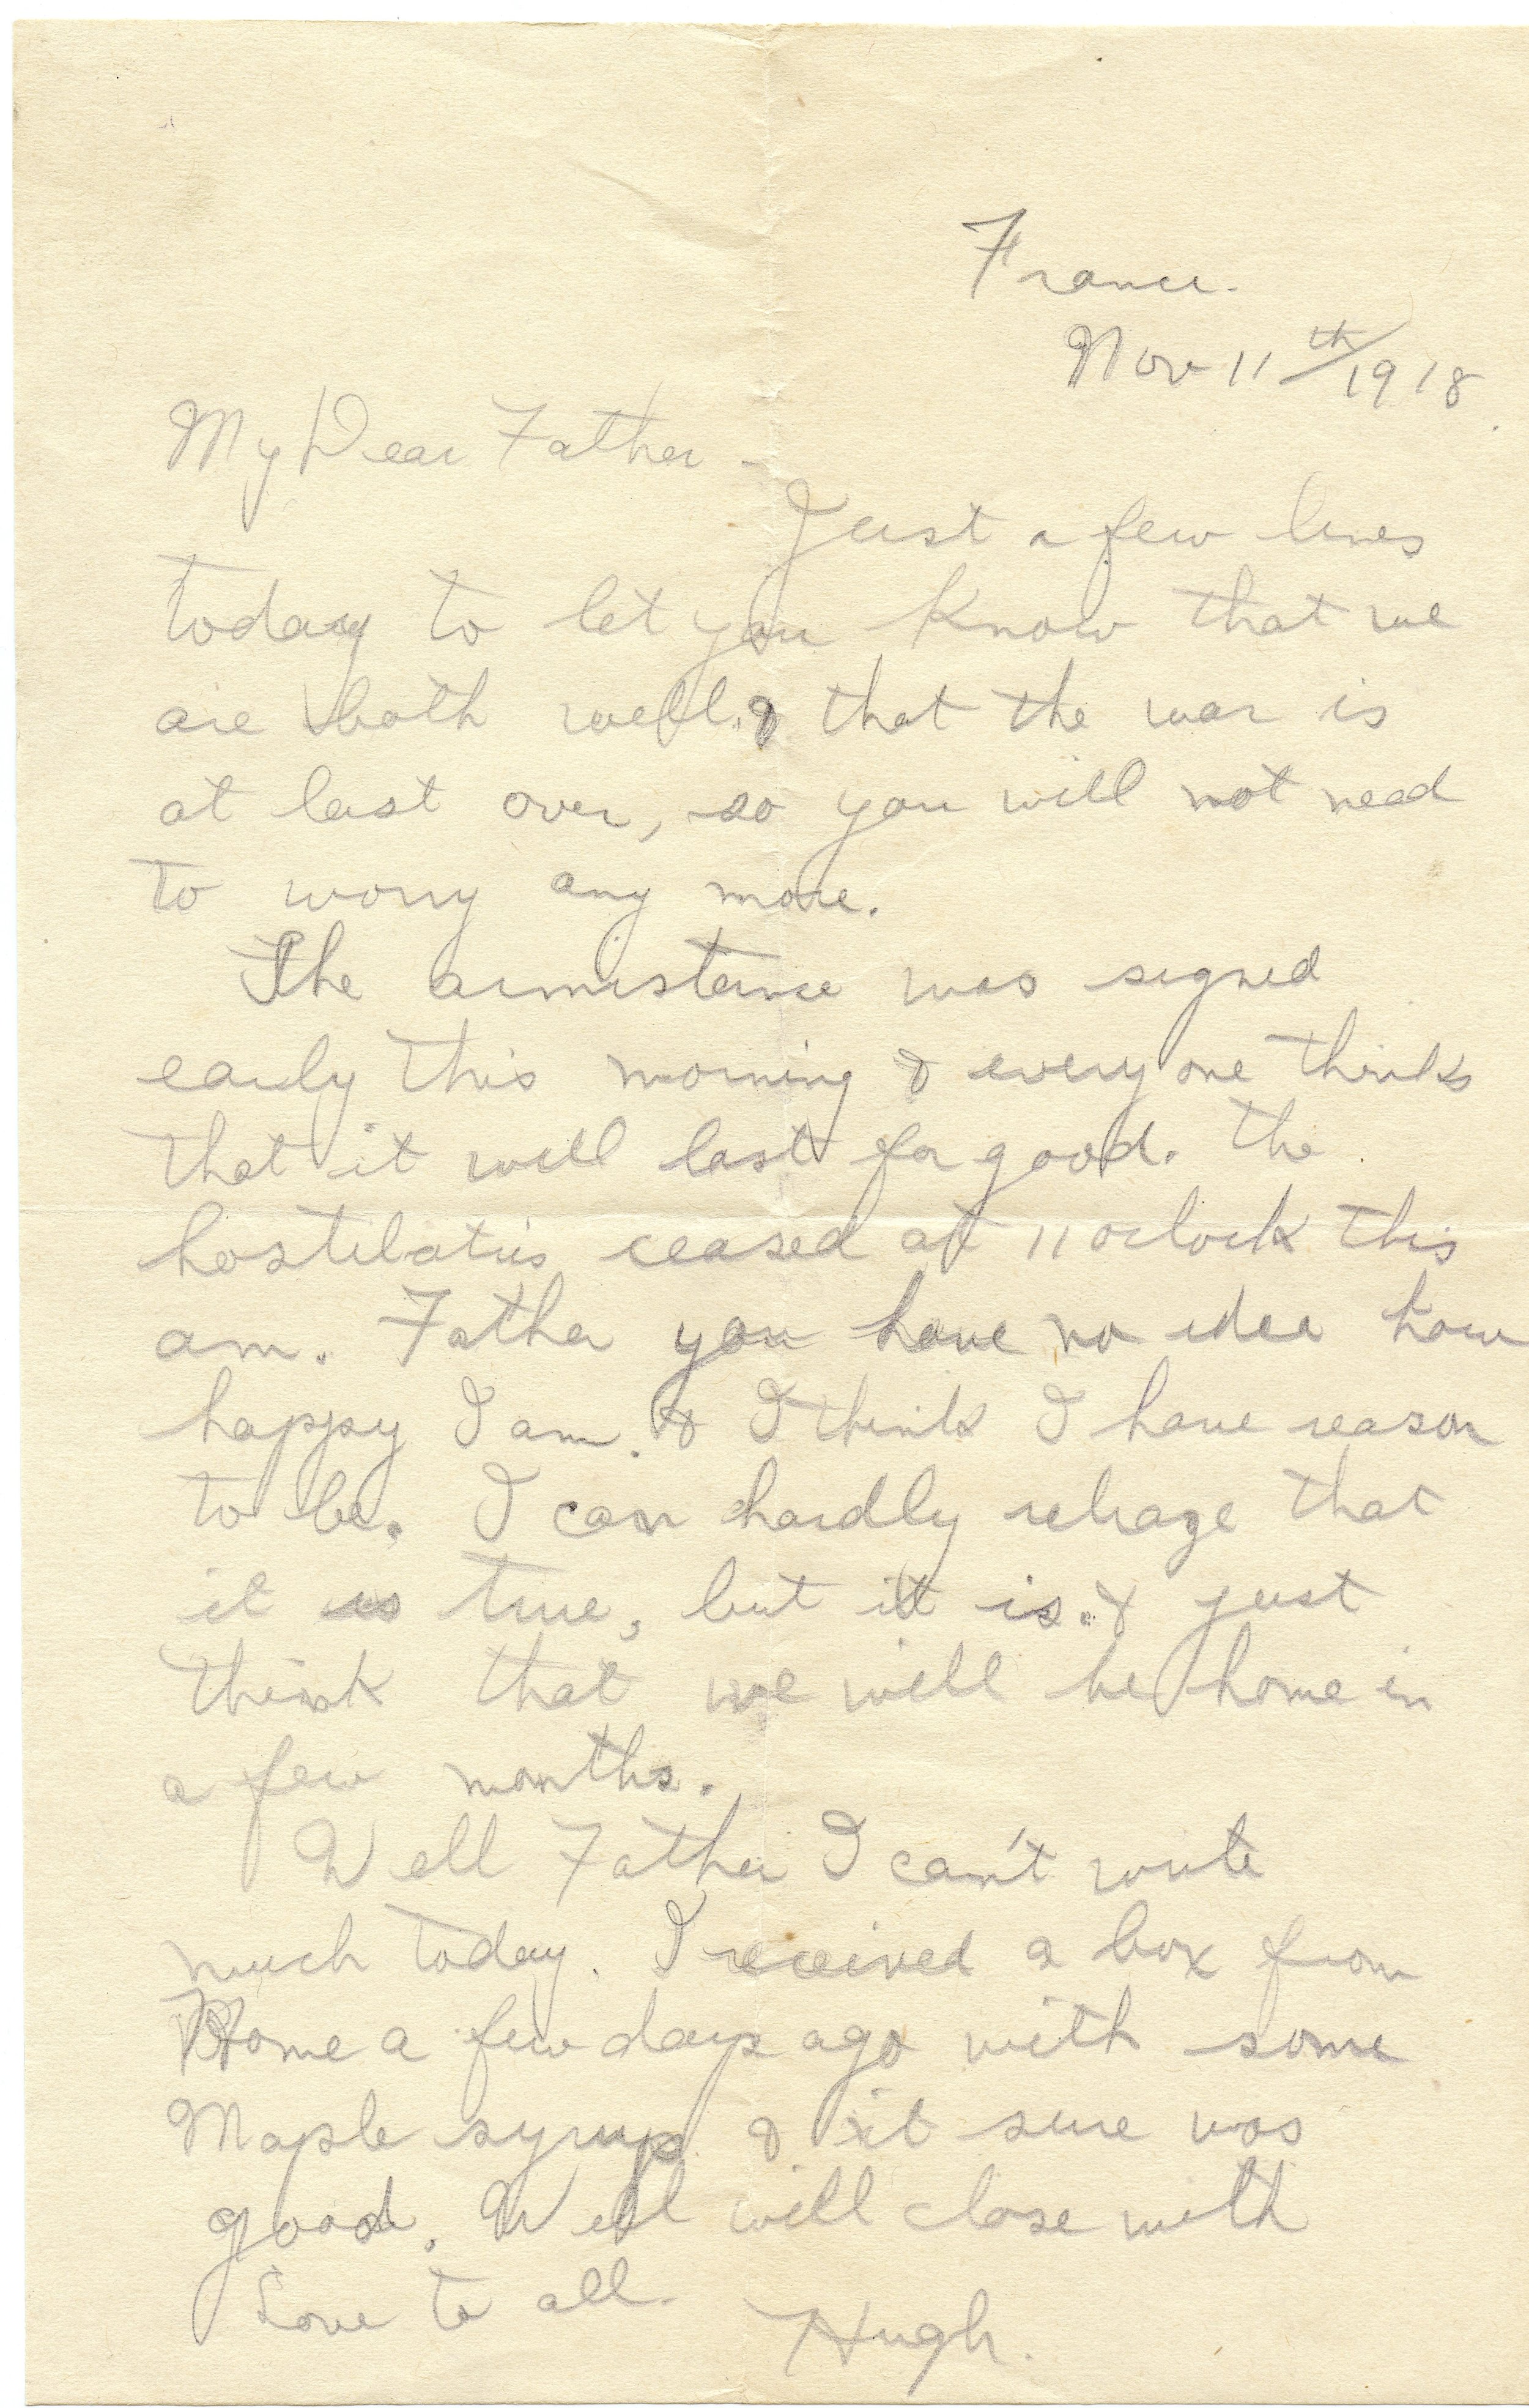 France.
Nov 11th/1918.
My Dear Father -
Just a few lines
today to let you know that we
are both well. & that the war is
at last over, so you will not need
to worry any more.
The armistance was signed
early this morning & every one thinks
that it will last for good. the
hostilatis ceased at 11 oclock this
am. Father you have no idea how
happy I am. & I think I have reason
to be. I can hardly reliaze that
it is true, but it is. & just
think that we will be home in
a few months.
Well Father I can't write
much today. I received a box from
Home a few days ago with some
Maple syrup. & it sure was
good. Well will close with
Love to all.
Hugh.